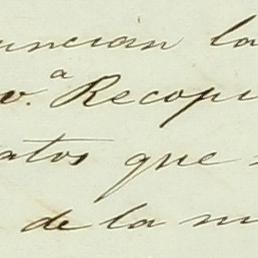 uncian la
v.ª Recopi
atos que
de la m